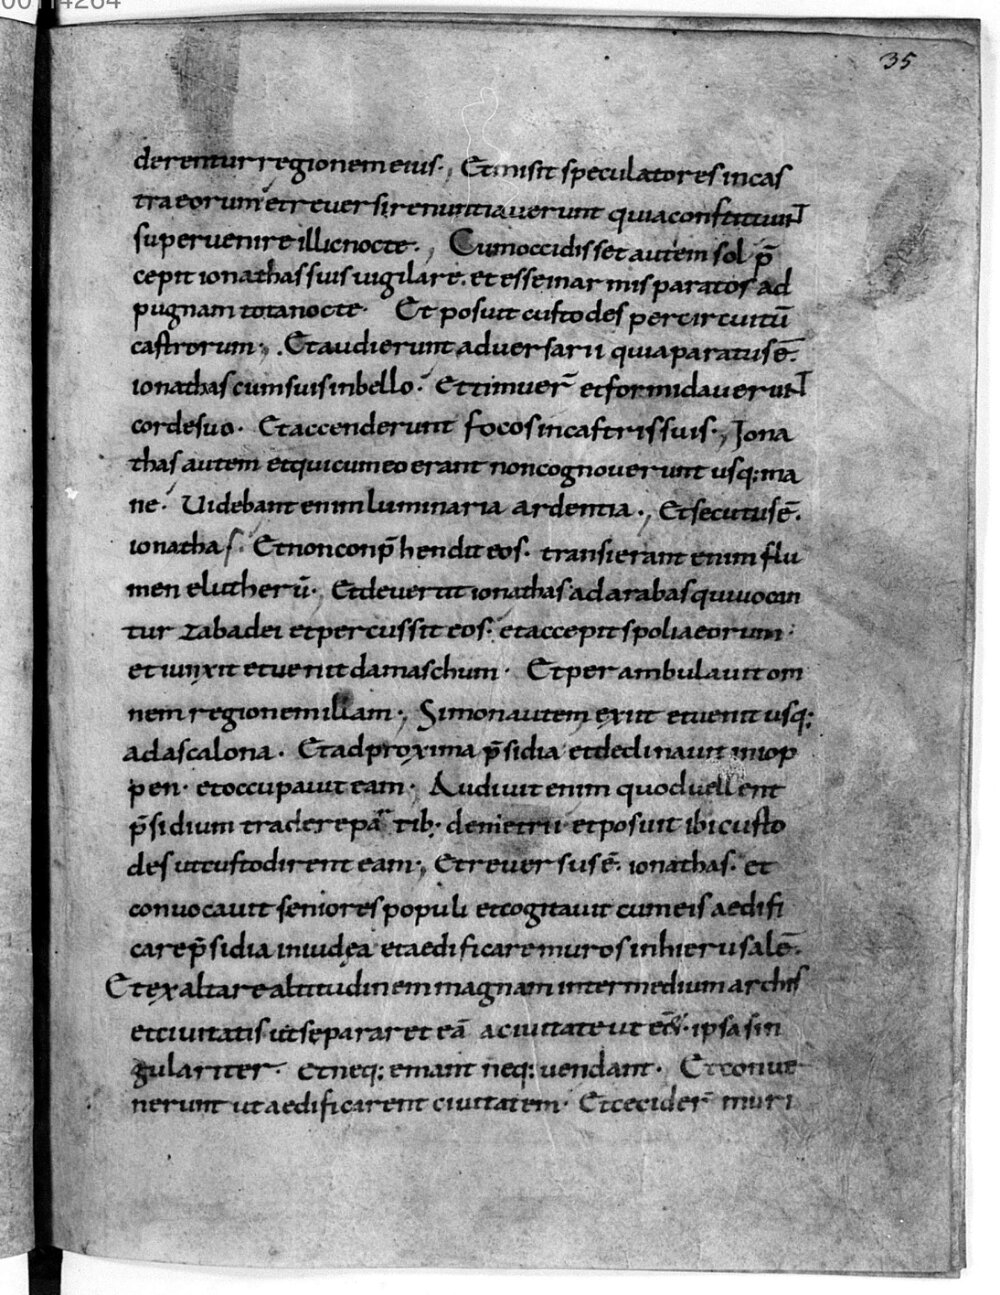 00114264
35
derentur regionem eius·, Et misit speculatores incas
tra eorum et reuersi renuntiauerunt quia constituunt
superuenire illic nocte·, Cum occidisset autem sol p̄
cepit ionathas suis uigilare· et esse in armis paratos ad
pugnam tota nocte· Et posuit custodes per circuitū
castrorum·, Et audierunt aduersarii quia paratus ē·
ionathas cum suis in bello· Et timuer̄ et formidauerunt
corde suo· Et accenderunt focos in castris suis·, Iona
thas autem et qui cum eo erant non cognouerunt usq; ma
ne· Uidebant enim luminaria ardentia·, Et secutus ē·
ionathas· Et non conp̄hendit eos· transierant enim flu
men elutherū· Et deuertit ionathas ad arabas qui uocan
tur zabadei et percussit eos· et accepit spolia eorum·
et iunxit et uenit damaschum· Et perambulauit om
nem regionem illam·, Simon autem exiit et uenit usq;
ad ascalona· Et ad proxima p̄sidia et declinauit in iop
pen· et occupauit eam· Audiuit enim quod uellent
p̄sidium tradere partib; demetrii et posuit ibi custo
des ut custodirent eam·, Et reuersus ē· ionathas· et
conuocauit seniores populi et cogitauit cum eis aedifi
care p̄sidia in iudęa et aedificare muros in hierusalē·
Et exaltare altitudinem magnam inter medium archis
et ciuitatis ut separaret eā a ciuitate ut eēt· ipsa sin
gulariter· Et neq; emant neq; uendant· Et conue
nerunt ut aedificarent ciuitatem· Et cecider̄ muri